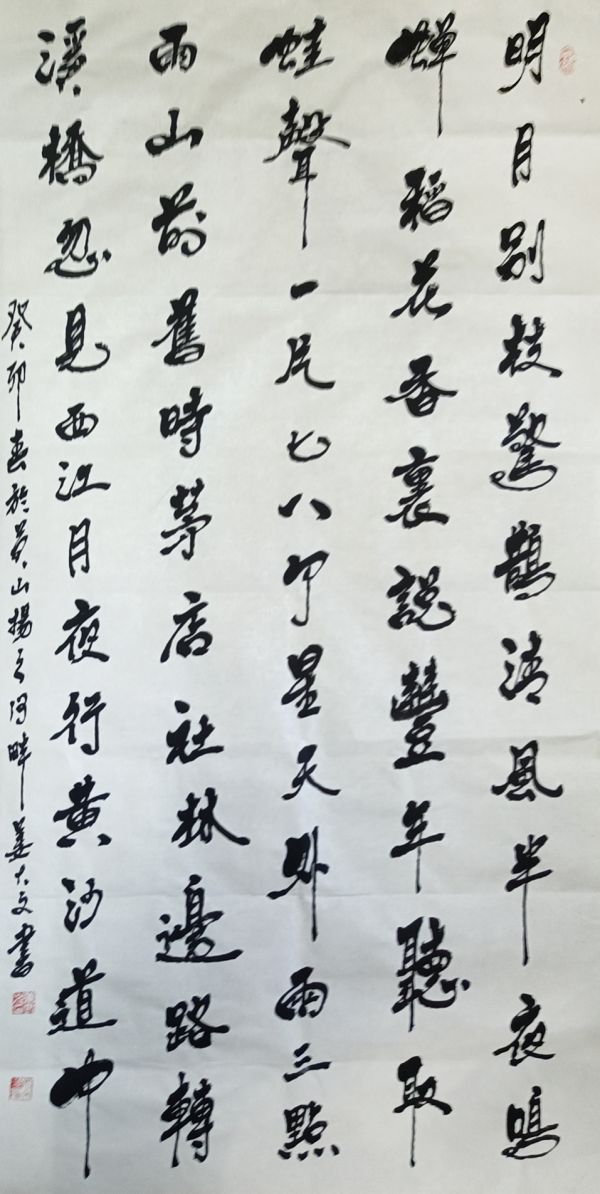 明月別枝驚鵲清風半夜鳴
蟬稻花香裏說豐年聽取
蛙聲一片七八个星天外兩三點
雨山前舊時茅店社林邊路轉
溪橋忽見西江月夜行黃沙道中
癸卯春於黃山揚之河畔姜大文書